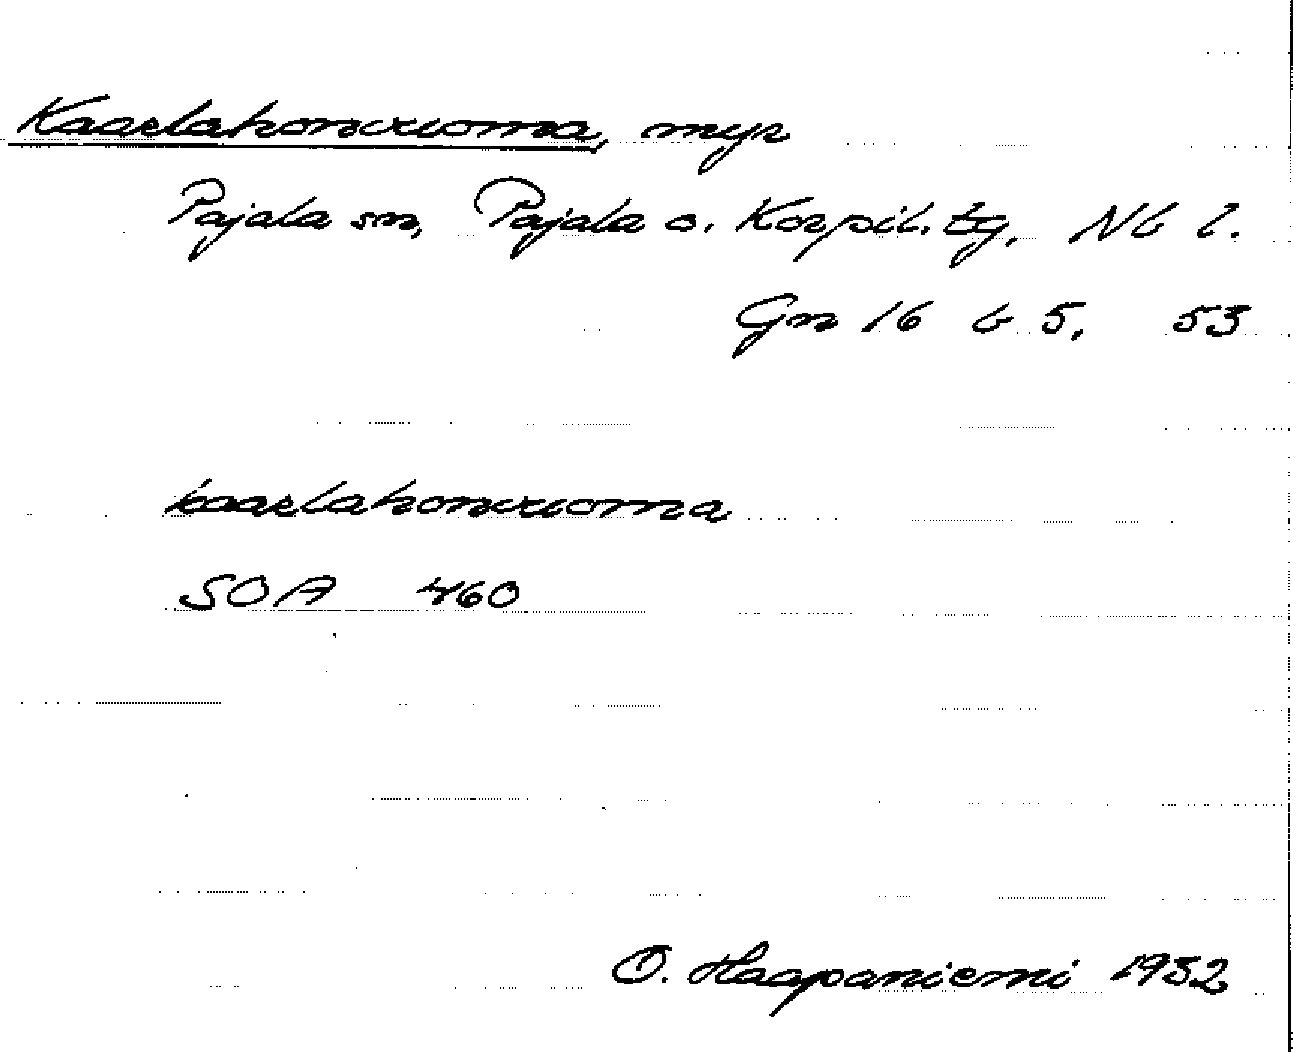 Kaarlahonvuoma, myr
Pajala sn, Pajala o. Korpil. tg, Nb l.
Gn 16 b 5, 53
kaarlahonvuoma
SOA 460
O. Haapaniemi 1932